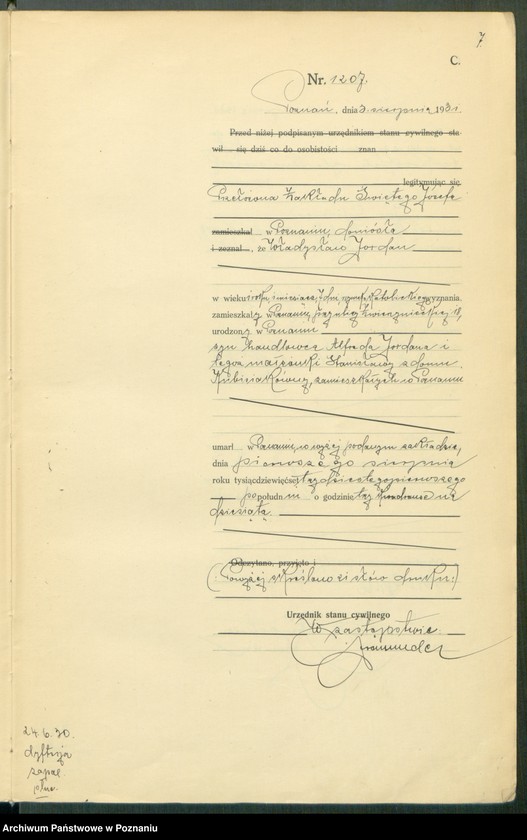 7
C.
Nr. 1207.
Poznań, dnia 3. sierpnia 1931.
Przed niżej podpisanym urzędnikiem stanu cywilnego sta
wił się dziś co do osobistości znan
legitymując się
Przełożona Zakładu Świętego Józefa
zamieszkał w Poznaniu, doniosła
i zeznał, że Władysław Jordan
w wieku 1 roku, miesiąca, dni, rzymsko katolickiego wyznania,
zamieszkały w Poznaniu, przy ulicy
urodzony w Poznaniu
syn handlowca Alfreda Jordana i
tegoż małżonki Stanisławy z domu
Kubisiakówny, zamieszkałych w Poznaniu
umarł w Poznaniu, w wyżej podanym zakładzie,
dnia pierwszego sierpnia
roku tysiącdziewięćset trzydziestego pierwszego
po południu o godzinie trzy kwadranse na
dziesiątą.
Odczytano, przyjęto i
(: Powyżej skreślono słów druku:)
Urzędnik stanu cywilnego
W zastępstwie
24.6.30.
dyfterja
zapal.
płuc.
Archiwum Państwowe w Poznaniu